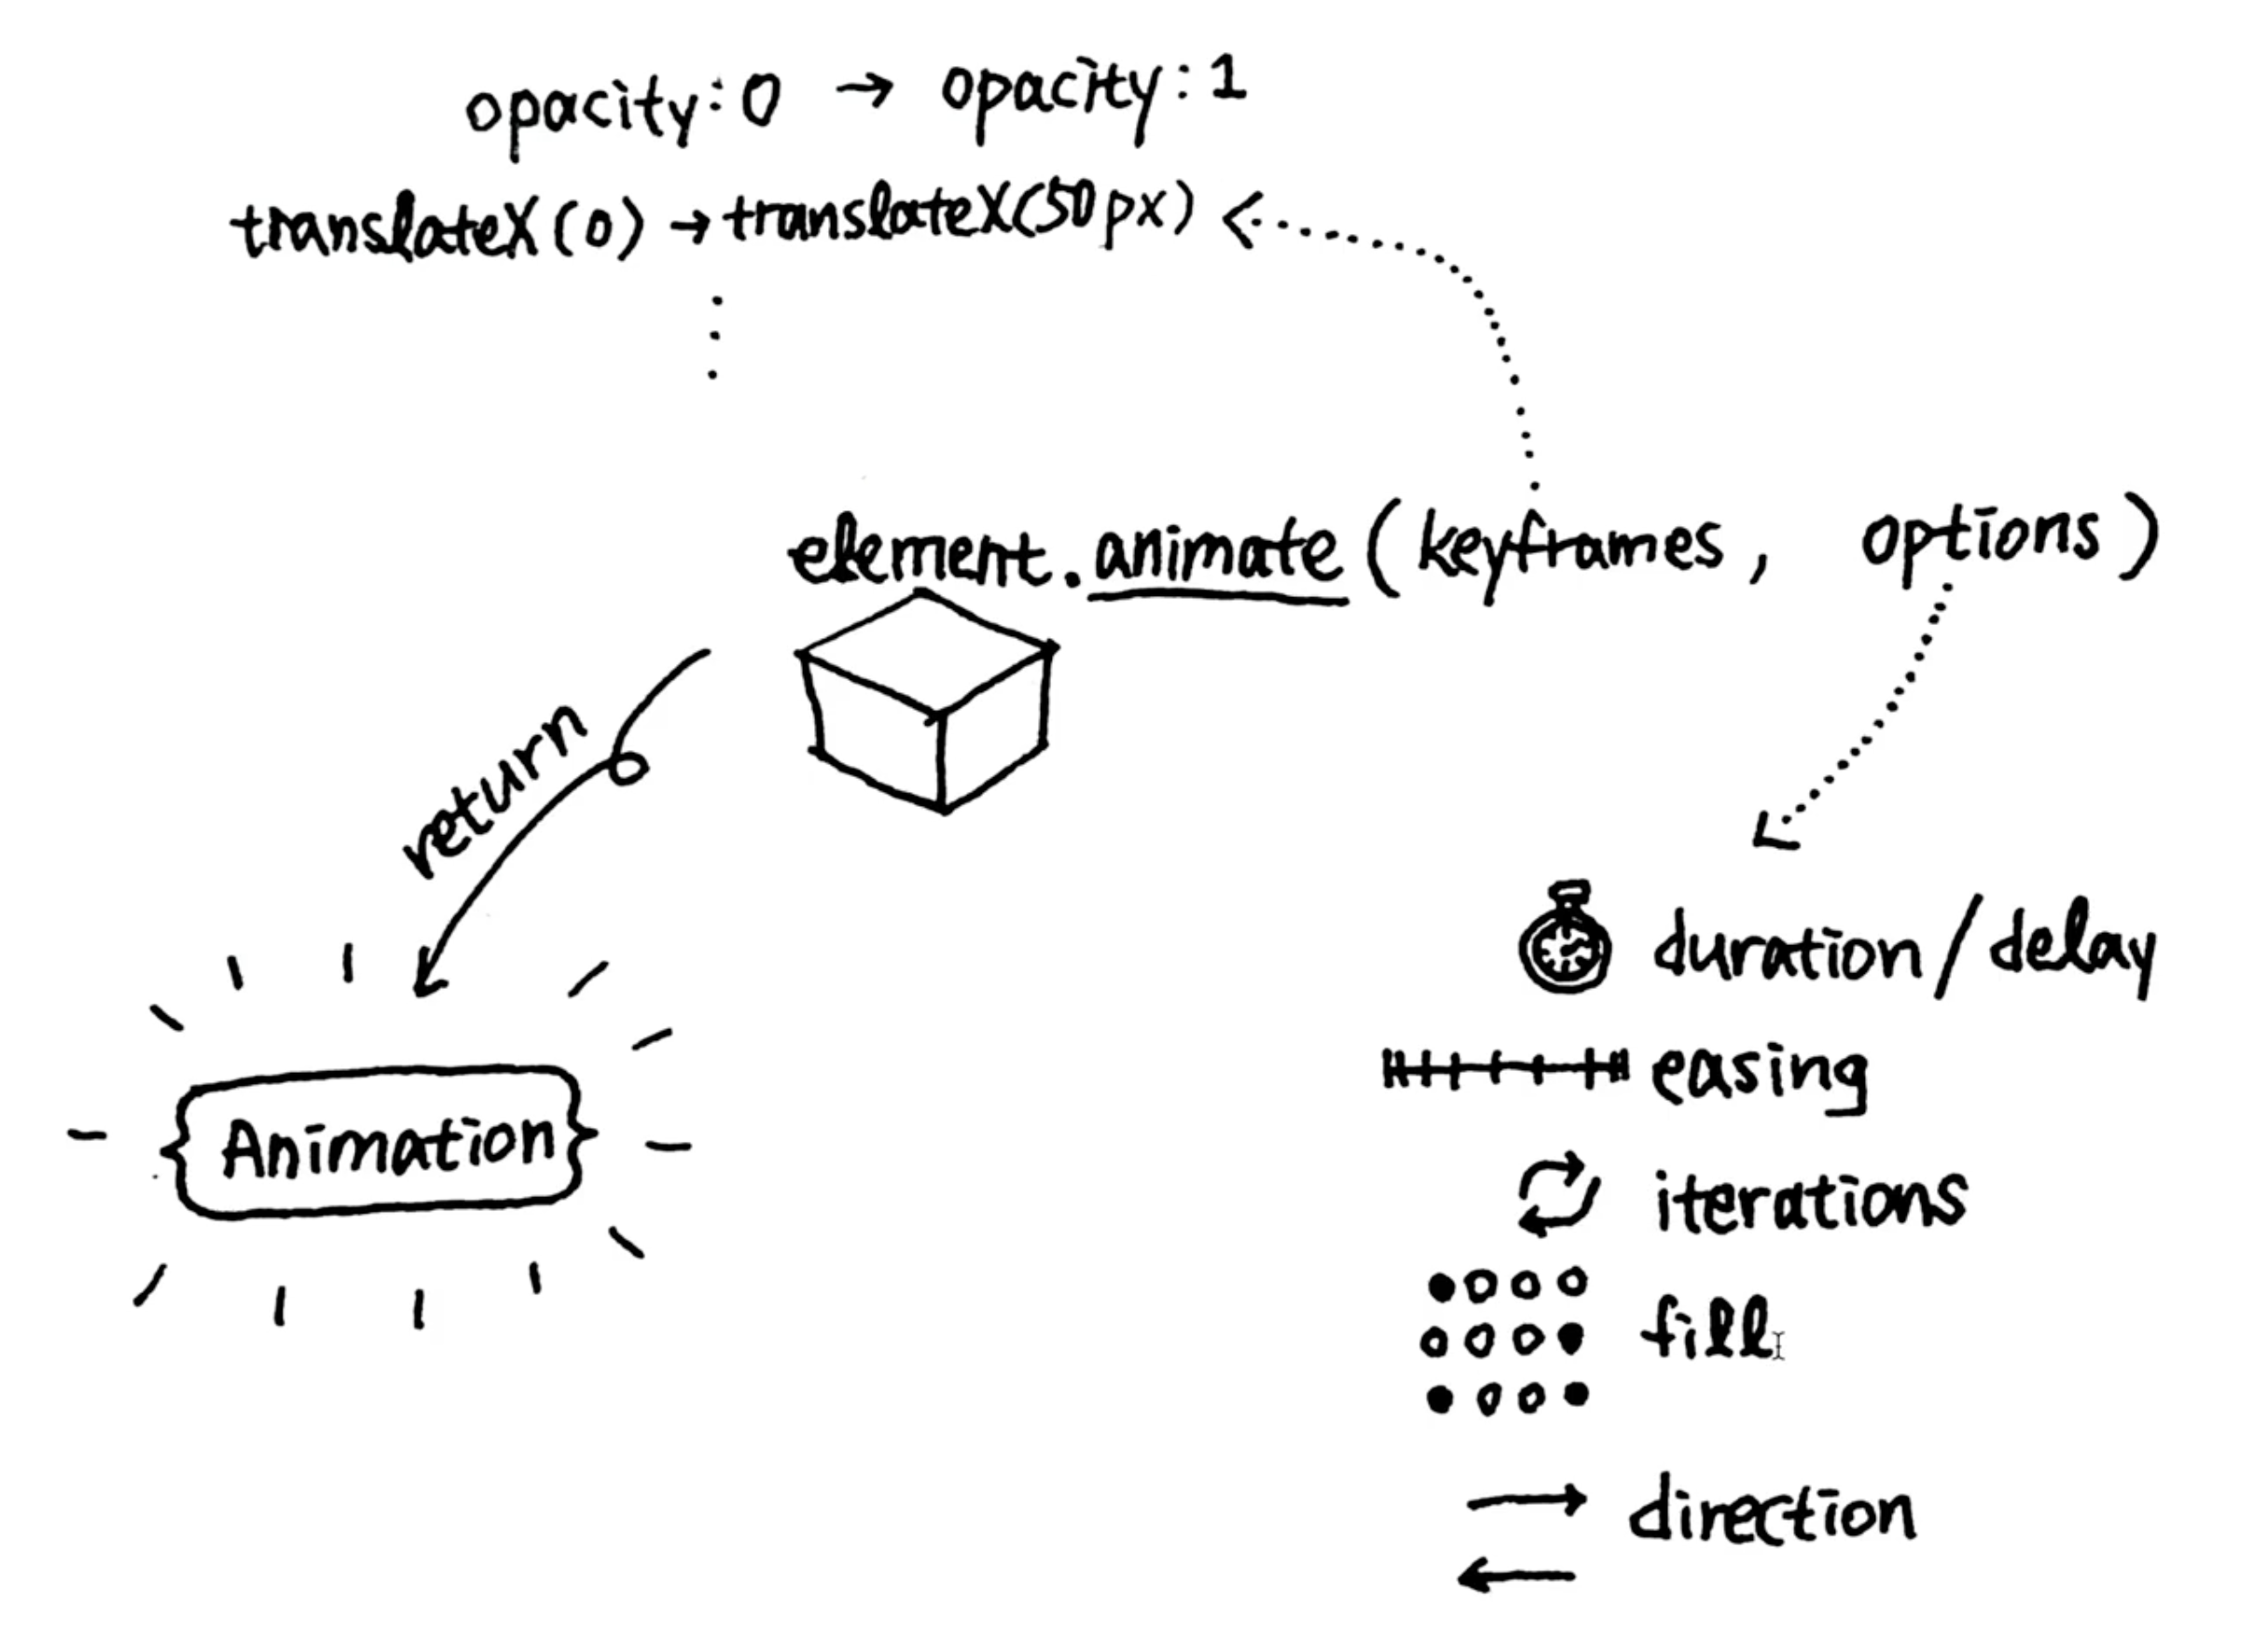 opacity:0 → opacity:1
translateX(0) → translateX(50px)
element.animate(keyframes, options)
return
{Animation}
duration/delay
easing
iterations
fill
direction